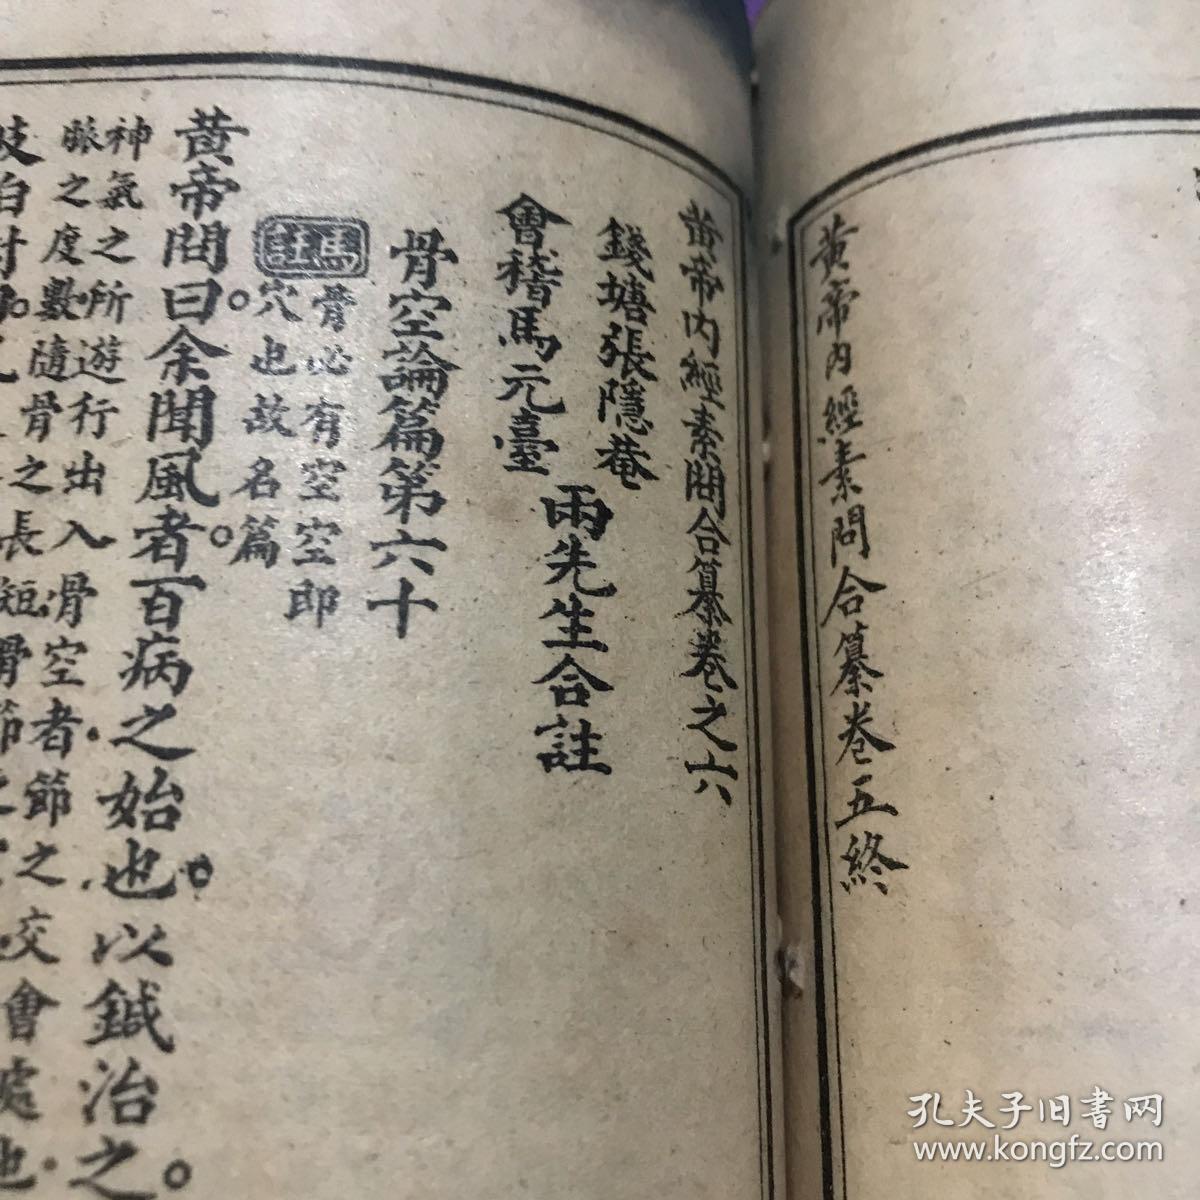 黃帝內經素問合纂卷五終
黃帝內經素問合纂卷之六
錢塘張隱菴
會稽馬元臺
兩先生合註
骨空論篇第六十
馬註
骨必有空空即
穴也故名篇
黃帝問曰余聞風者百病之始也以鍼治之。
神氣之所遊行出入骨空者節之交會處也
脈之度數隨骨之長短骨節之
岐伯對
孔夫子旧書网
www.kongfz.com